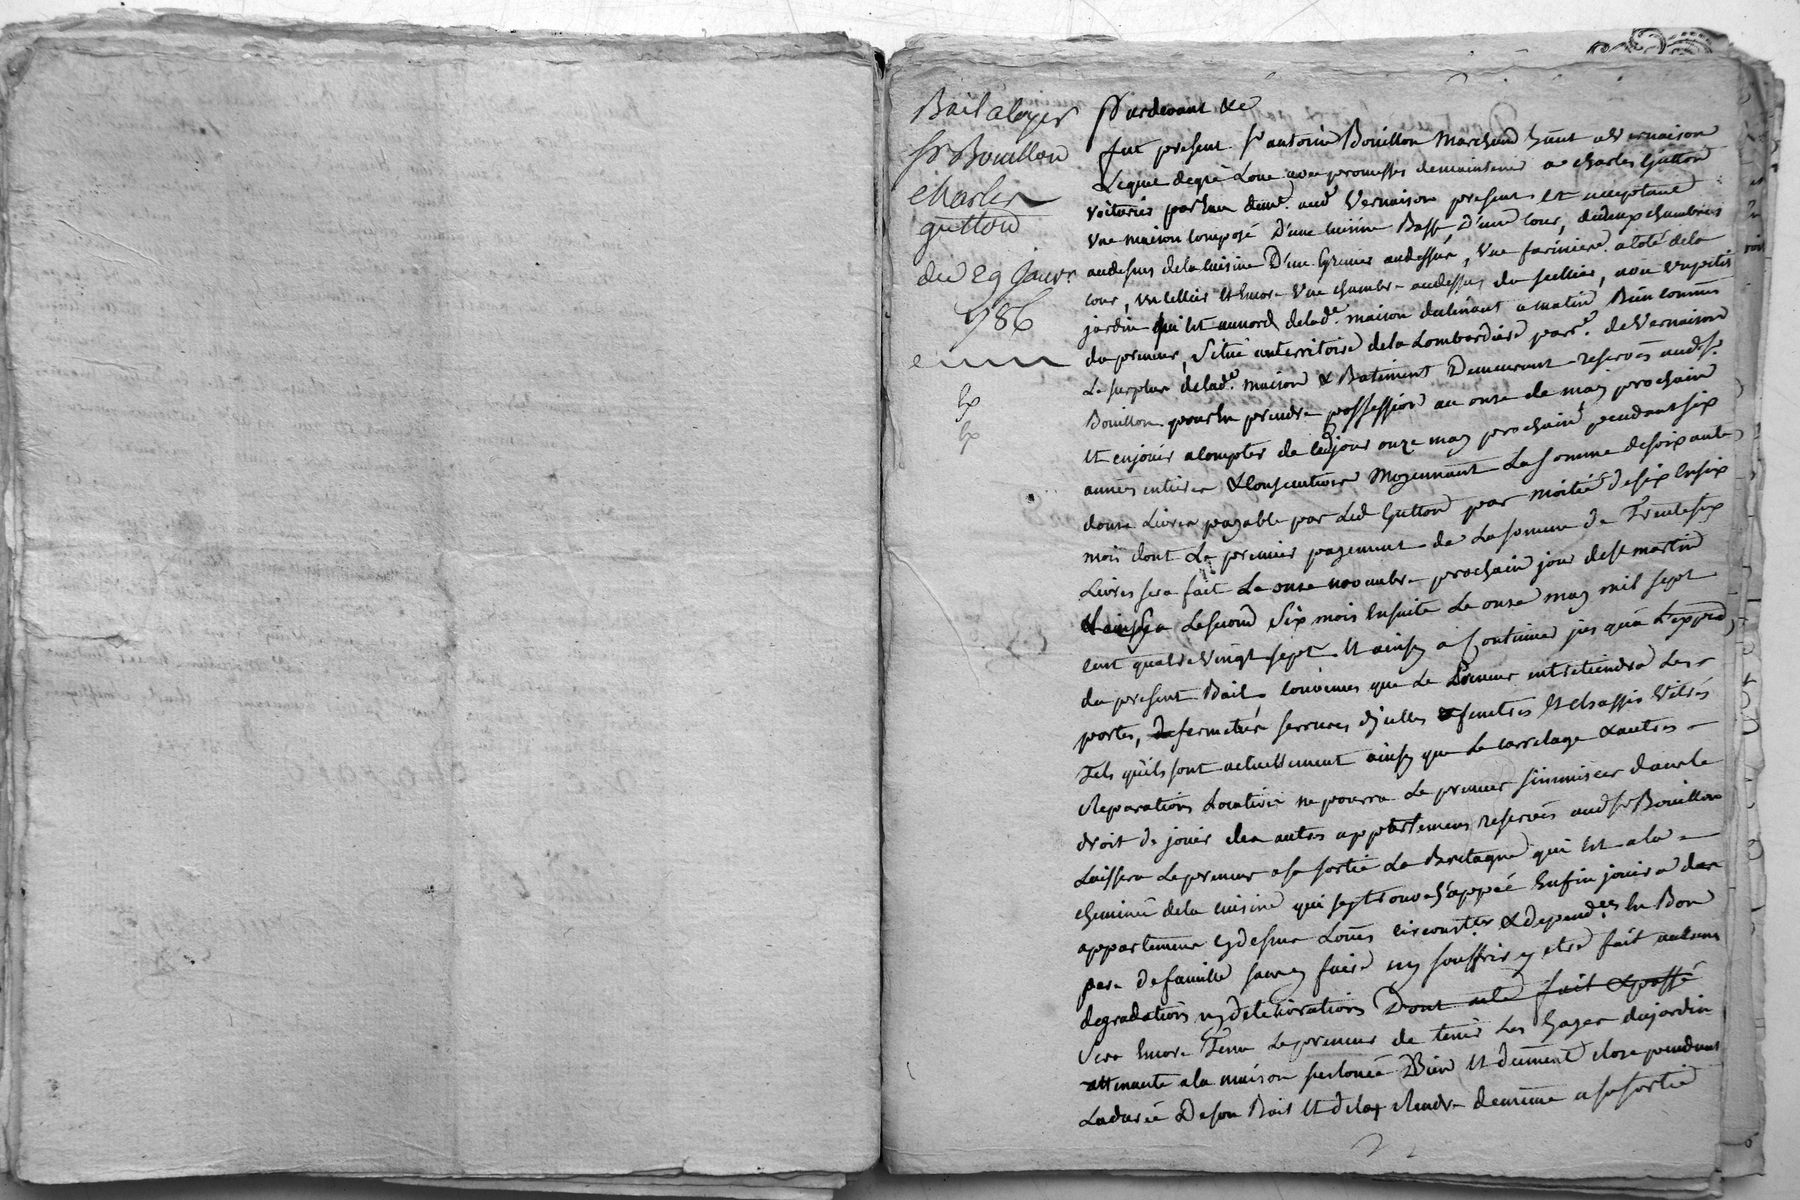 Bail a loyer
Sr Bouillon
charles
gutton
du 29 Janvr
1786
Pardevant &c
fut present Sr antoine Bouillon Marchand hãnt a Vernaison
Lequel de gré Loue avec promesses de maintenir a charles Gutton
voiturier par eau demt. aud Vernaison present et acceptant
Une maison composé D'une cuisine Basse D'une cour, de deux chambres
au dessus de la cuisine D'un Grenier au dessus, Une fariniere a coté de la
cour, un cellier Et Encore Une chambre au dessus du sellier, avec un petit
jardin qui Est au nord de lade. maison de linant a matin Bien connus
du preneur, Situé au territoire de la Lombardiere parr. de Vernaison
Le surplus de lade. maison & Batiment Demeurant reservés aud Sr.
Bouillon pour En prendre possession au onse de may prochain
Et en jouir a compter de led jour onze may prochain pendant six
années entieres & Consecutives Moyennant La Somme de soixante
douse Livres payable par Led Gutton par moitié de six En six
mois dont Le premier payement de La somme de Trente six
Livres sera fait Le onse novembre prochain jour de st martin
Le second Six mois Ensuite Le onse may mil sept
cent quatre Vingt sept Et ainsy a Continuer jus qu'a L'expiron
du present Bail, convenus que Le preneur entretiendra Les
portes, fermetures serrures d'y celles fenetres Et chassis Vitrés
Tels qu'ils sont actuellement ainsy que Le carrelage & autres
Reparations Locatives ne pourra Le preneur s'immiscer dans le
droit de jouir des autres appartemens reservés aud Sr Bouillon
Laissera Le preneur a sa sortie La Bretagne qui Est a la
cheminé de la cuisine qui se trouve Enfin jouira des
appartemens cy dessus Loués circonstces & dependces En Bon
pere de famille sans y faire ny souffrir y etre fait aucunes
degradations ny deteriorations Dont acte fait & passé
Sera Encore Tenu Le preneur de tenir Les hayes du jardin
attenante a la maison sus louée Bien Et duement close pendant
La durée De son Bail Et de les Rendre de meme a sa sortie